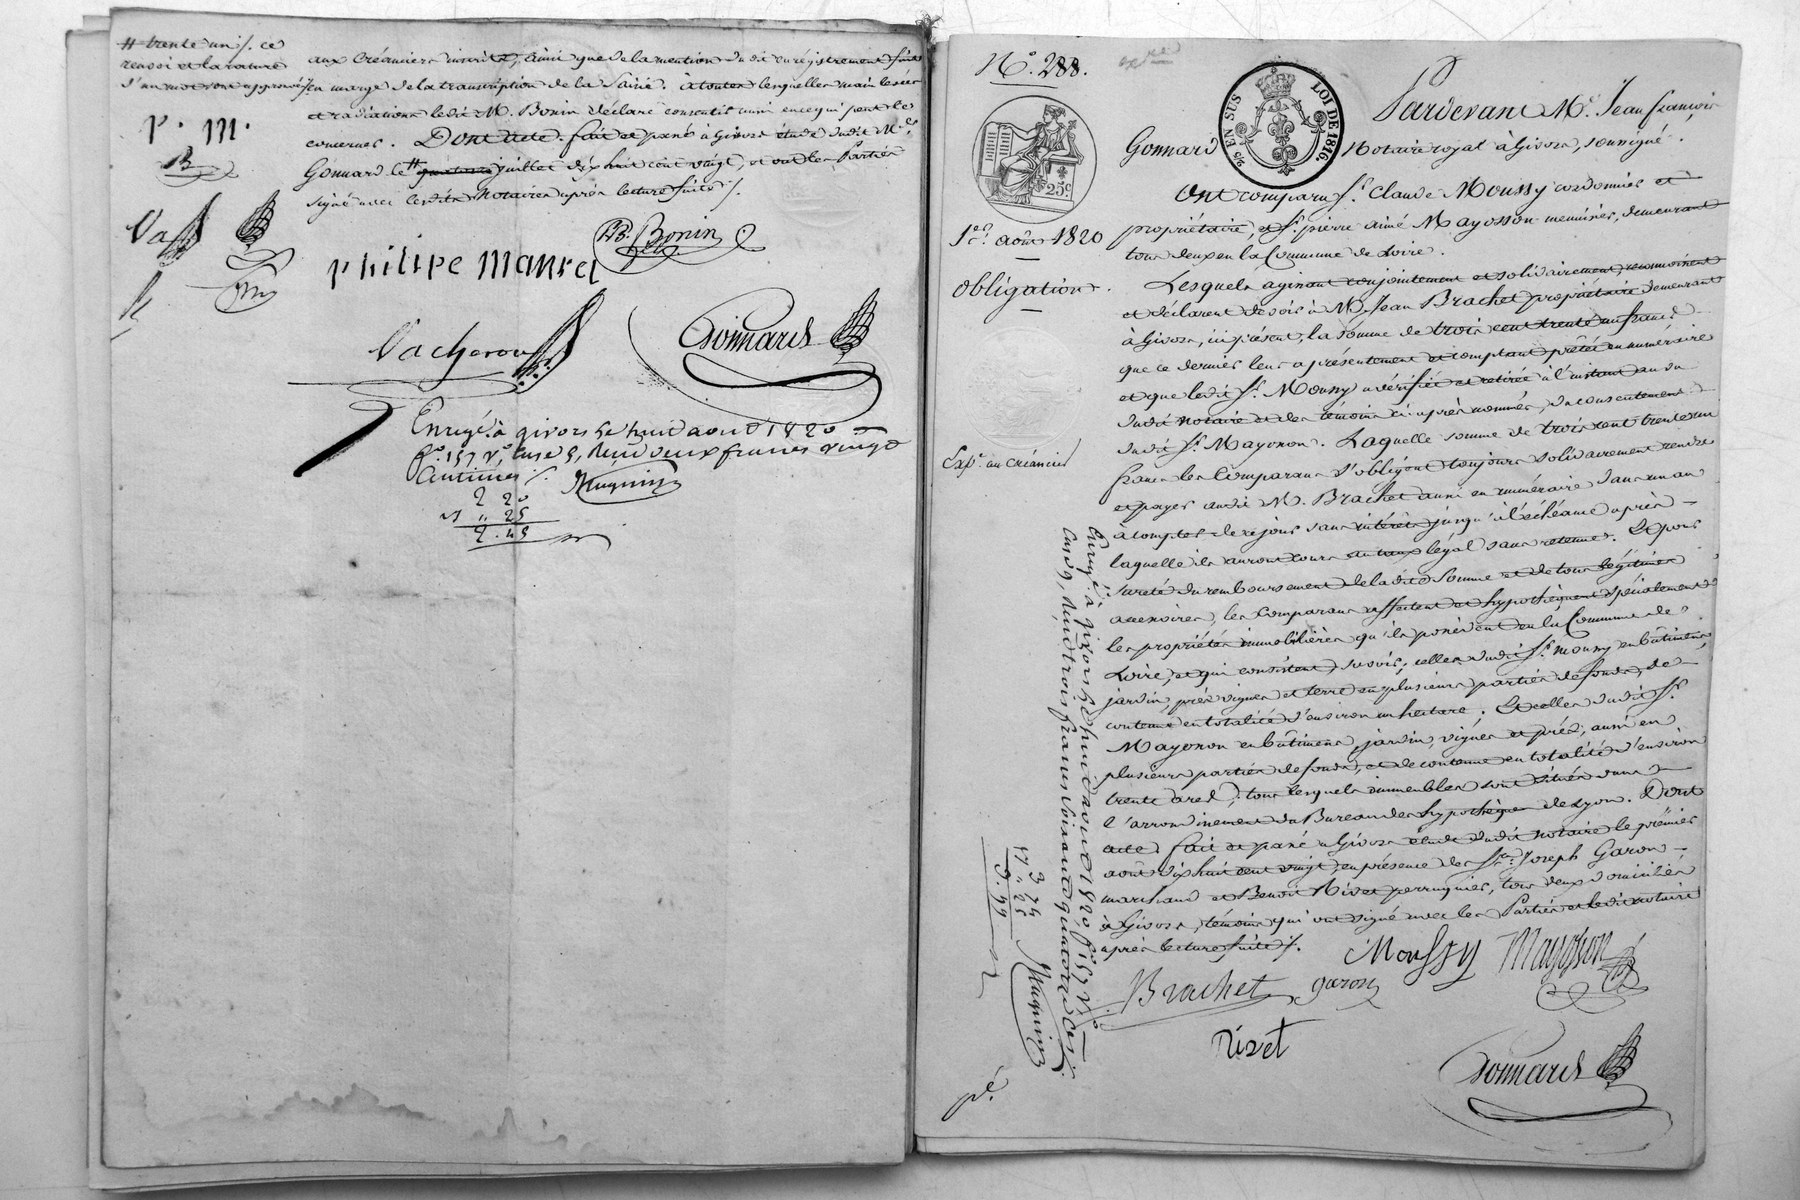 # trente un /. ce
renvoi et la rature
d'un mot sont approuvés /.
P. M.
B
Va
aux Créanciers inscrits, ainsi que de la mention dudit enregistrement faite
en marge de la transcription de la saisie. à toutes lesquelles main levées
et radiations ledit M. Bonin déclare consentir aussi en ce qui peut le
concerner. Dont acte. fait et passé à Givors étude dudit Me.
Gonnard le # juillet dix huit cent vingt, et ont les Parties
signé avec ledit Notaire après lecture faite /.
Bonin
Philipe Manuel
Vacheron
Gonnard
Enregé. à givors le huit aout 1820
fo. 157 vo. case 5, reçu deux francs vingt
Centimes /.
2 20
" 25
2.45
No. 288.
25c
1er. août 1820
obligation.
Expon. au créancier
EN SUS
LOI DE 1816.
Pardevant Me. Jean françois
Gonnard Notaire royal à Givors, soussigné.
Ont comparu Sr. Claude Moussy cordonnier et
propriétaire, et Sr. pierre aimé Mayosson menuisier, demeurant
tous deux en la Commune de Loire.
Lesquels agissant conjointement et solidairement, reconnaissent
et déclarent devoir à M. Jean Brachet propriétaire demeurant
à Givors, ici présent, la somme de trois cent trente un francs
que ce dernier leur a présentement et comptant prêtée en numéraire
et que ledit Sr. Moussy a vérifiée et retirée à l'instant au vu
dudit notaire et des témoins ci après nommés, du consentement
dudit Sr. Mayosson. Laquelle somme de trois cent trente un
francs les Comparans s'obligent toujours solidairement rendre
et payer audit M. Brachet aussi en numéraire dans un an
à compter de ce jour sans intérêts jusqu'à l'échéance après
laquelle ils auront cours au taux légal sans retenue. Et pour
sûreté du remboursement de ladite somme et de tous légitimes
accessoires, les Comparans affectent et hypothèquent spécialement
les propriétés immobilières qu'ils possèdent en la Commune de
Loire, et qui consistent, savoir; celles dudit Sr. Moussy en bâtimens,
jardin, prés vignes et terre en plusieurs parties de fonds, de
contenue en totalité d'environ un hectare. Et celles dudit Sr.
Mayosson en bâtimens, jardin, vignes et prés, aussi en
plusieurs parties de fonds, et de contenue en totalité d'environ
trente ares; tous lesquels immeubles sont situés dans
l'arrondissement du Bureau des hypothèques de Lyon. Dont
acte. fait et passé à Givors étude dudit notaire le premier
août dix huit cent vingt, en présence des Srs. Joseph Garon
marchand et Benoit Rivet perruquier, tous deux domiciliés
à Givors, témoins qui ont signé avec les Parties et ledit notaire
après lecture faite /.
Moussy Mayosson
Brachet garon
Rivet
Gonnard
Enregé. à givors le huit aout 1820 fo. 157 vo.
case 9, reçu trois francs soixante quatorze ces. /.
3 74
" 25
3.99